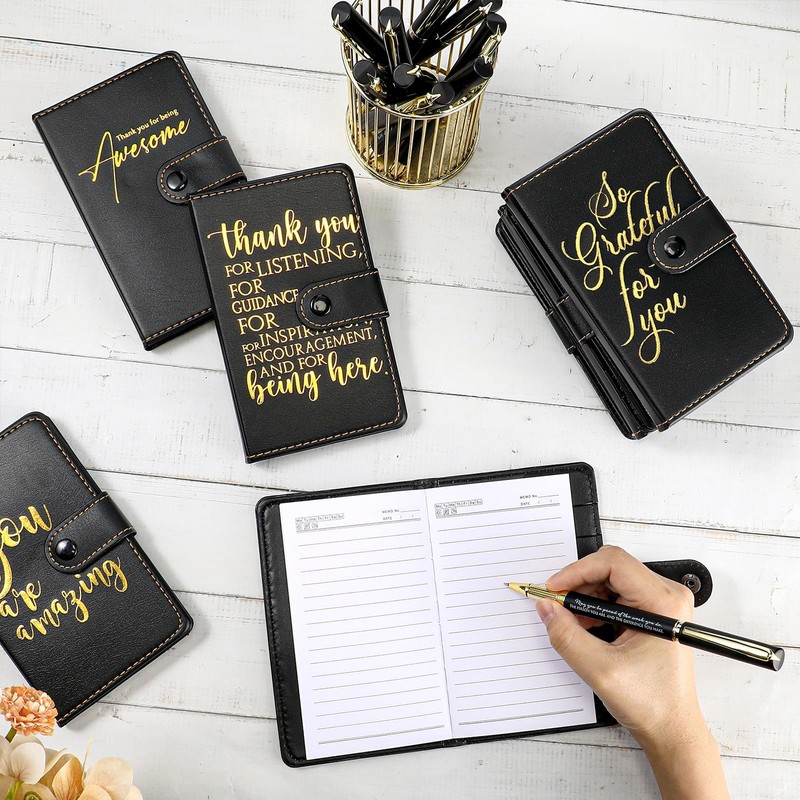 Thank you for being
Awesome
thank you
FOR LISTENING,
FOR
GUIDANCE
FOR
FOR INSPIR
ENCOURAGEMENT,
AND FOR
being here.
So
Grateful
for
you
you
are
amazing
Mo Tu We Th Fr Sa Su
MEMO No.
DATE / /
Mo Tu We Th Fr Sa Su
MEMO No.
DATE / /
May you be proud of the work you do,
THE PERSON YOU ARE, AND THE DIFFERENCE YOU MAKE.